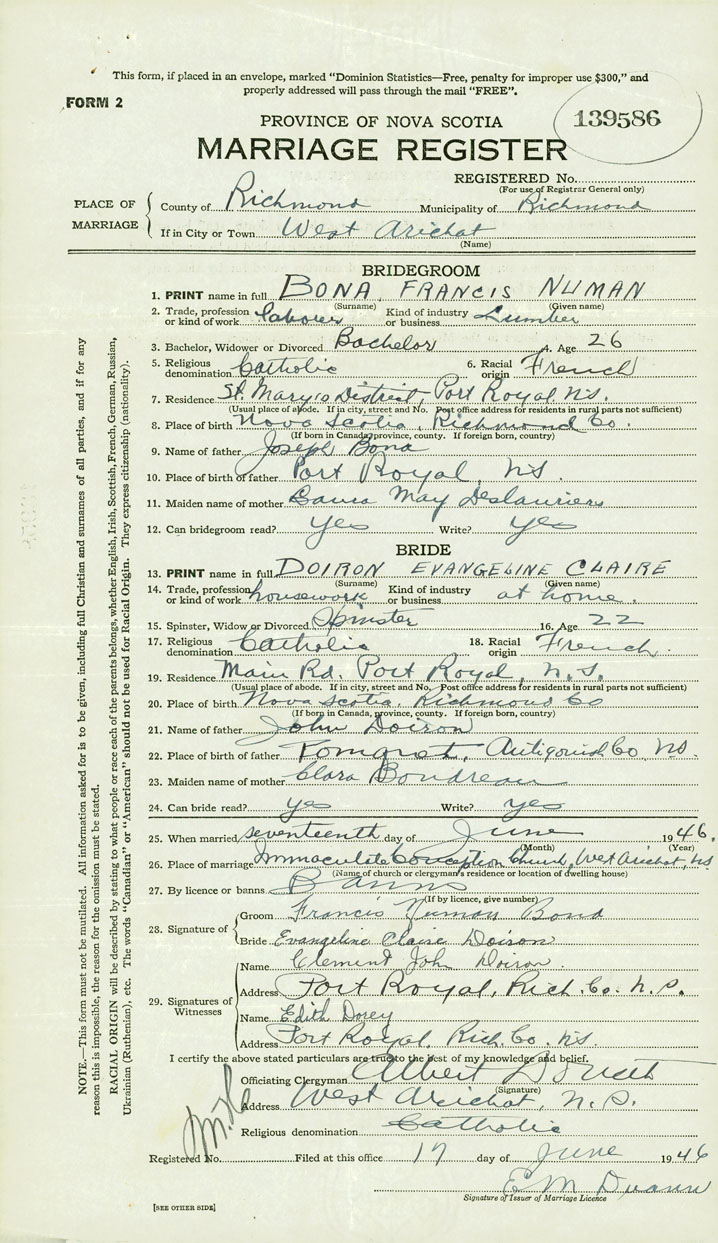 This form, if placed in an envelope, marked "Dominion Statistics—Free, penalty for improper use $300," and
properly addressed will pass through the mail "FREE".
FORM 2
139586
PROVINCE OF NOVA SCOTIA
MARRIAGE REGISTER
REGISTERED No.
(For use of Registrar General only)
PLACE OF MARRIAGE
County of Richmond Municipality of Richmond
If in City or Town West Arichat
(Name)
BRIDEGROOM
1. PRINT name in full BONA FRANCIS NUMAN
(Surname) (Given name)
2. Trade, profession or kind of work laborer Kind of industry or business Lumber
3. Bachelor, Widower or Divorced Bachelor 4. Age 26
5. Religious denomination Catholic 6. Racial origin French
7. Residence St. Mary's District, Port Royal, N.S.
(Usual place of abode. If in city, street and No. Post office address for residents in rural parts not sufficient)
8. Place of birth Nova Scotia, Richmond Co.
(If born in Canada, province, county. If foreign born, country)
9. Name of father Joseph Bona
10. Place of birth of father Port Royal, N.S.
11. Maiden name of mother May Deslauriers
12. Can bridegroom read? Yes Write? Yes
BRIDE
13. PRINT name in full DOIRON EVANGELINE CLAIRE
(Surname) (Given name)
14. Trade, profession or kind of work housework Kind of industry or business at home.
15. Spinster, Widow or Divorced Spinster 16. Age 22
17. Religious denomination Catholic 18. Racial origin French.
19. Residence Main Rd. Port Royal, N.S.
(Usual place of abode. If in city, street and No. Post office address for residents in rural parts not sufficient)
20. Place of birth Nova Scotia, Richmond Co
(If born in Canada, province, county. If foreign born, country)
21. Name of father John Doiron
22. Place of birth of father Antigonish Co. N.S.
23. Maiden name of mother Clara Boudreau
24. Can bride read? yes Write? yes
25. When married seventeenth day of June 1946.
(Month) (Year)
26. Place of marriage Immaculate Conception Church, West Arichat, N.S.
(Name of church or clergyman's residence or location of dwelling house)
27. By licence or banns Banns
(If by licence, give number)
28. Signature of
Groom Francis Numan Bona
Bride Evangeline Claire Doiron
29. Signatures of Witnesses
Name Clement John Doiron.
Address Port Royal, Rich. Co. N.S.
Name Edith Dorey
Address Port Royal, Rich. Co. N.S.
I certify the above stated particulars are true to the best of my knowledge and belief.
Officiating Clergyman Albert
(Signature)
Address West Arichat, N.S.
Religious denomination Catholic
Registered No. Filed at this office 17 day of June 1946
E M
Signature of Issuer of Marriage Licence
[SEE OTHER SIDE]
NOTE.—This form must not be mutilated. All information asked for is to be given, including full Christian and surnames of all parties, and if for any
reason this is impossible, the reason for the omission must be stated.
RACIAL ORIGIN will be described by stating to what people or race each of the parents belongs, whether English, Irish, Scottish, French, German, Russian,
Ukrainian (Ruthenian), etc. The words "Canadian" or "American" should not be used for Racial Origin. They express citizenship (nationality).